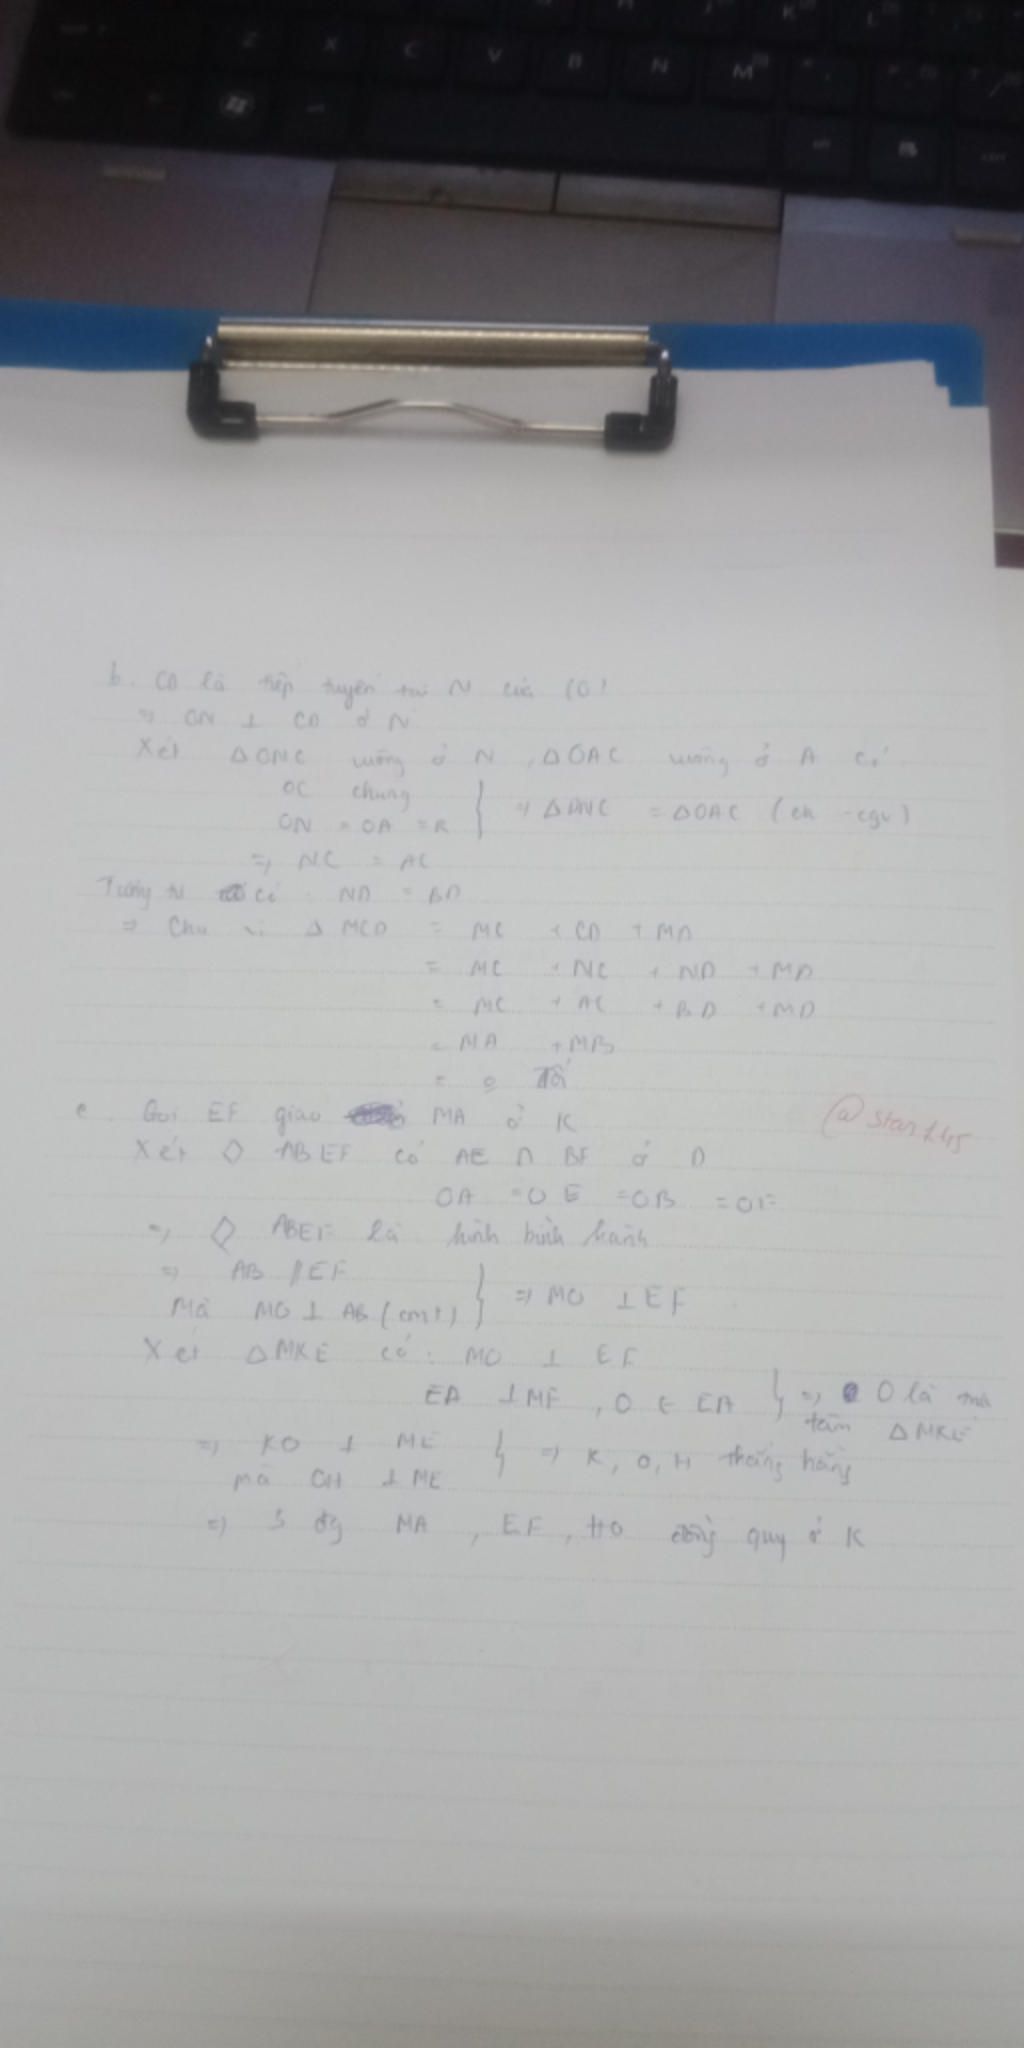 Z X C V B N M
b. CD là tiếp tuyến tại N của (O)
=> ON ⊥ CD ở N
Xét △ONC vuông ở N, △OAC vuông ở A có
OC chung
ON = OA = R } => △ONC = △OAC (ch - cgv)
=> NC = AC
Tương tự có ND = BD
=> Chu vi △ MCD = MC + CD + MD
= MC + NC + ND + MD
= MC + AC + BD + MD
= MA + MB
=
c. Gọi EF giao MA ở K
@star145
Xét ◇ ABEF có AE ∩ BF ở O
OA = OE = OB = OF
=> ◇ ABEF là hình bình hành
=> AB // EF
Mà MO ⊥ AB (cmt) } => MO ⊥ EF
Xét △MKE có: MO ⊥ EF
EA ⊥ MF, O ∈ EA } => O là trực
tâm △MKE
=> KO ⊥ ME
mà OH ⊥ ME } => K, O, H thẳng hàng
=> 3 đg MA, EF, HO đồng quy ở K